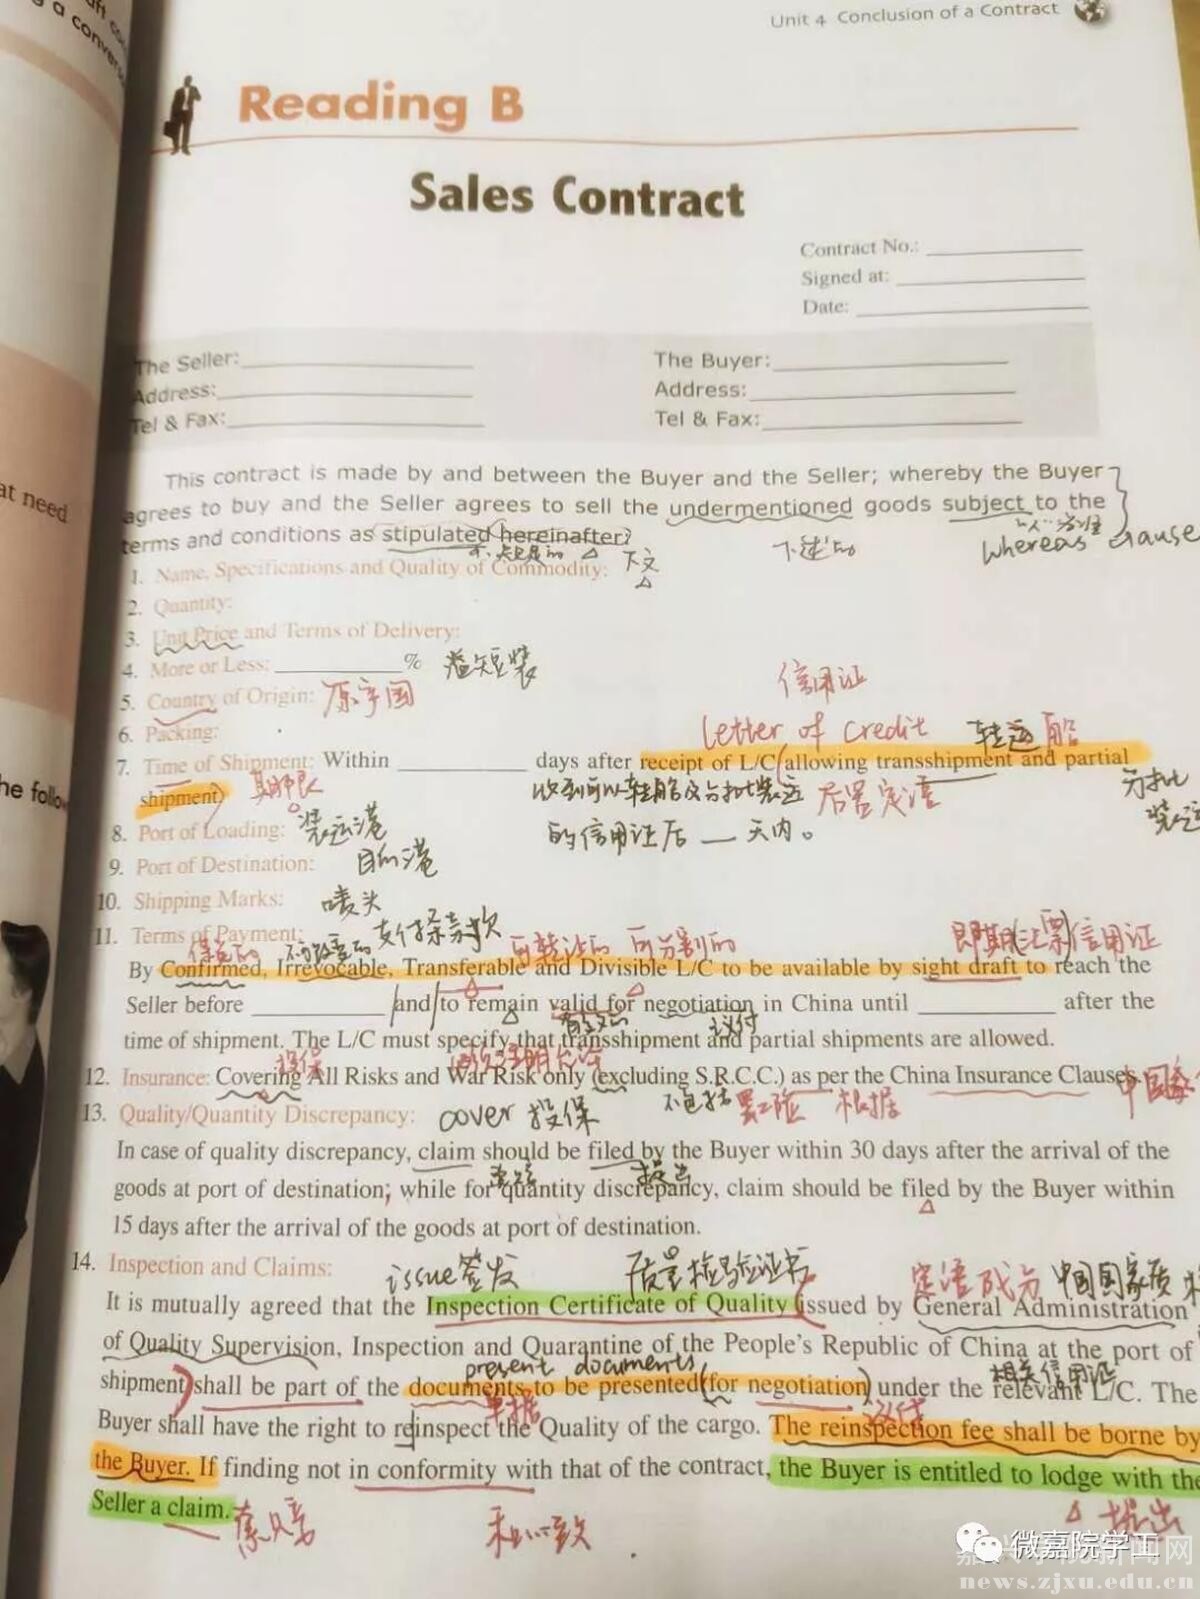 Unit 4 Conclusion of a Contract
Reading B
Sales Contract
Contract No.:
Signed at:
Date:
The Seller:
Address:
Tel & Fax:
The Buyer:
Address:
Tel & Fax:
This contract is made by and between the Buyer and the Seller; whereby the Buyer
agrees to buy and the Seller agrees to sell the undermentioned goods subject to the
terms and conditions as stipulated hereinafter:
下文
下述的
Whereas clause
1. Name, Specifications and Quality of Commodity:
2. Quantity:
3. Unit Price and Terms of Delivery:
4. More or Less: ____________% 溢短装
5. Country of Origin: 原产国
信用证
6. Packing:
letter of credit 转运 船
7. Time of Shipment: Within ____________ days after receipt of L/C (allowing transshipment and partial
shipment) 期限
收到可以转船及分批装运 后置定语
分批
装运
的信用证后 — 天内。
8. Port of Loading: 装运港
9. Port of Destination: 目的港
10. Shipping Marks: 唛头
11. Terms of Payment: 支付条款
保兑的 不可撤销的 可转让的 可分割的 即期(汇票)信用证
By Confirmed, Irrevocable, Transferable and Divisible L/C to be available by sight draft to reach the
Seller before ____________ and to remain valid for negotiation in China until ____________ after the
有效的 议付
time of shipment. The L/C must specify that transshipment and partial shipments are allowed.
投保
12. Insurance: Covering All Risks and War Risk only (excluding S.R.C.C.) as per the China Insurance Clauses.
不包括 罢工险 根据 中国
13. Quality/Quantity Discrepancy: cover 投保
In case of quality discrepancy, claim should be filed by the Buyer within 30 days after the arrival of the
提出
goods at port of destination; while for quantity discrepancy, claim should be filed by the Buyer within
15 days after the arrival of the goods at port of destination.
14. Inspection and Claims: issue 签发 质量检验证书 定语成分 中国国家质
It is mutually agreed that the Inspection Certificate of Quality (issued by General Administration
of Quality Supervision, Inspection and Quarantine of the People's Republic of China at the port of
present documents 相关信用证
shipment) shall be part of the documents to be presented (for negotiation) under the relevant L/C. The
单据 议付
Buyer shall have the right to reinspect the Quality of the cargo. The reinspection fee shall be borne by
the Buyer. If finding not in conformity with that of the contract, the Buyer is entitled to lodge with the
Seller a claim. 索赔 和…一致 提出
at need
he follow
微嘉院学工
news.zjxu.edu.cn